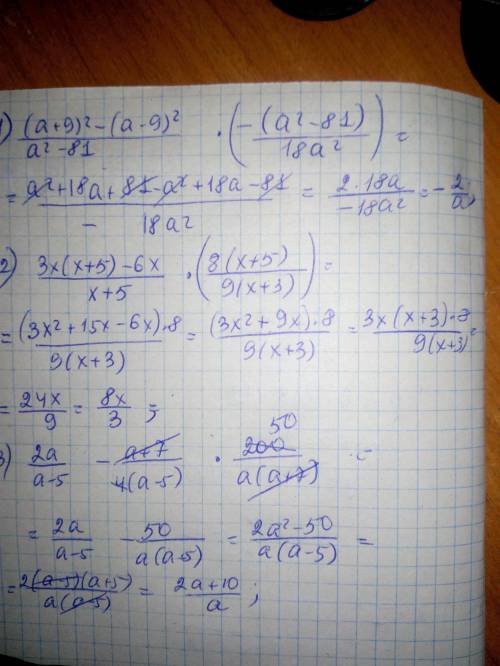 1) ((a+9)²-(a-9)²)/(a²-81) · (-(a²-81)/(18a²)) =
= (a²+18a+81-a²+18a-81)/(-18a²) = (2·18a)/(-18a²) = -2/a;
2) (3x(x+5)-6x)/(x+5) · (8(x+5)/(9(x+3))) =
= ((3x²+15x-6x)·8)/(9(x+3)) = ((3x²+9x)·8)/(9(x+3)) = (3x(x+3)·8)/(9(x+3)) =
= 24x/9 = 8x/3;
3) 2a/(a-5) - (a+7)/(4(a-5)) · 200/(a(a+7)) = 50
= 2a/(a-5) - 50/(a(a-5)) = (2a²-50)/(a(a-5)) =
= (2(a-5)(a+5))/(a(a-5)) = (2a+10)/a;